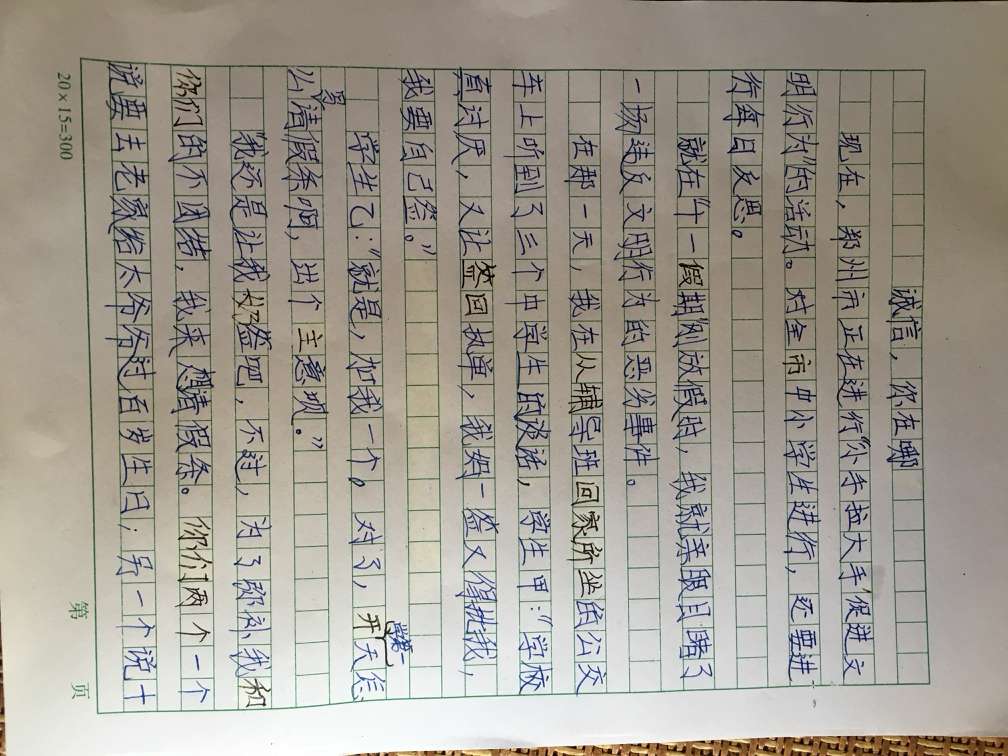 诚信，你在哪
现在，郑州市正在进行“小手拉大手促进文
明行为”的活动。对全市中小学生进行，还要进
行每日反思。
就在“十一假期”刚放假时，我就亲眼目睹了
一场违反文明行为的恶劣事件。
在那一天，我在从辅导班回家所坐的公交
车上听到了三个中学生的谈话，学生甲：“学校
真讨厌，又让签回执单，我妈一签又得批我，
我要自己签。”
学生乙：“就是，加我一个。对了，开学第一天怎
么写请假条啊，出个主意呗。”
“我还是让我妈签吧，不过，为了弥补我和
你们的不团结，我来想请假条。你们两个一个
说要去老家给太爷爷过百岁生日；另一个说十
20×15=300
第 页